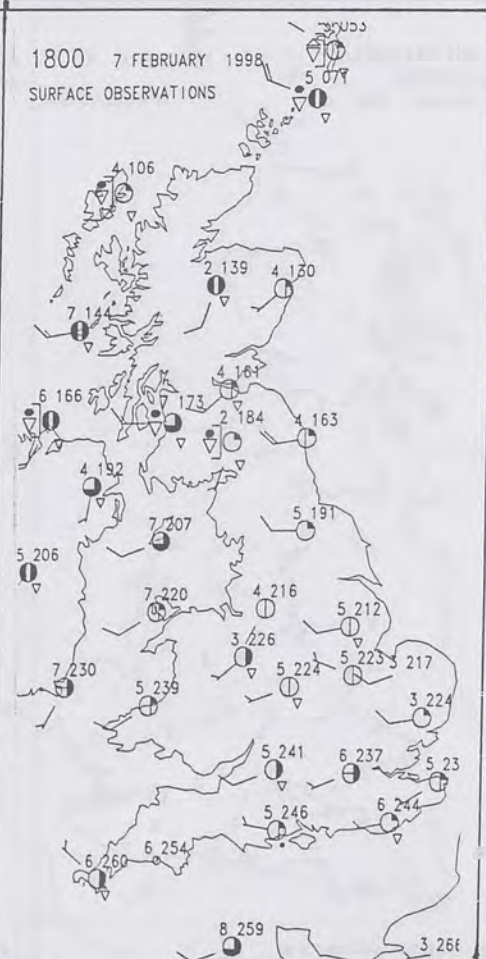 1800 7 FEBRUARY 1998
SURFACE OBSERVATIONS
5 071
4 106
2 139
4 130
7 144
4 161
6 166
173
2 184
4 163
4 192
7 207
5 191
5 206
7 220
4 216
5 212
3 226
5 223
3 217
7 230
5 239
5 224
3 224
5 241
6 237
5 23
5 246
6 244
6 260
6 254
8 259
3 266